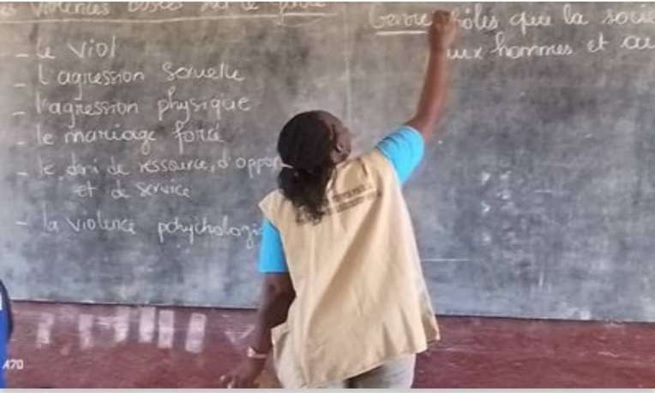 violences basées sur le genre
- le viol
- l'agression sexuelle
- l'agression physique
- le mariage forcé
- le déni de ressource, d'oppor
et de service
- la violence psychologi
Genre rôles que la soci
aux hommes et au
A70